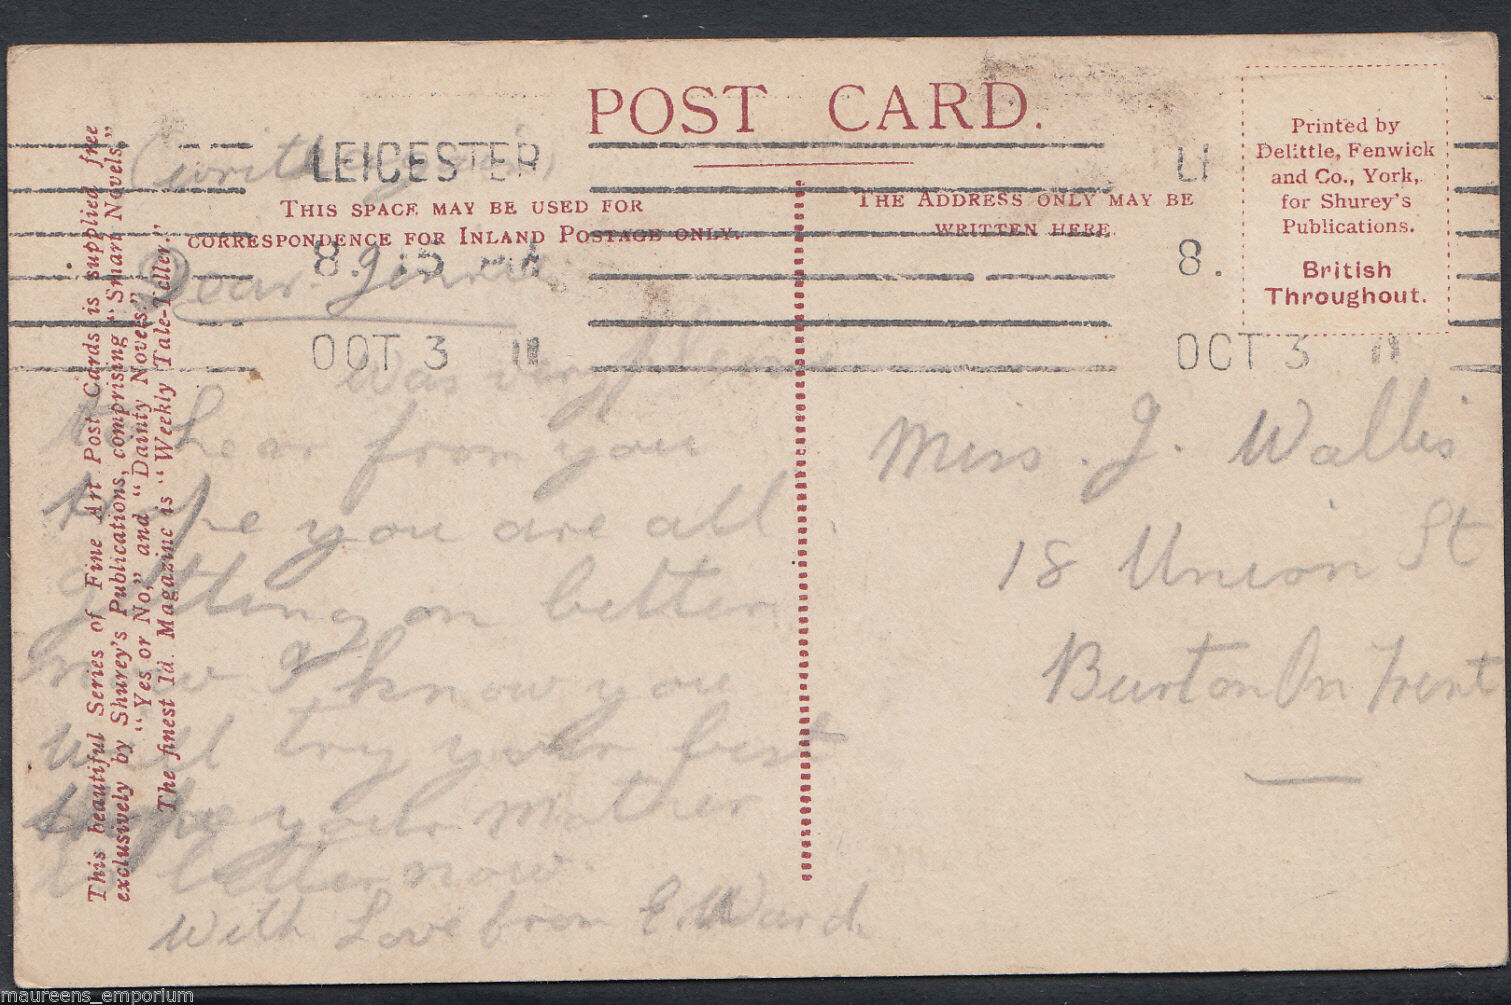 POST CARD.
LEICESTER
8.15
OCT 3 11
THIS SPACE MAY BE USED FOR
CORRESPONDENCE FOR INLAND POSTAGE ONLY.
THE ADDRESS ONLY MAY BE
WRITTEN HERE.
8.
OCT 3 11
Printed by
Delittle, Fenwick
and Co., York,
for Shurey's
Publications.
British
Throughout.
This beautiful Series of Fine Art Post Cards is supplied free
exclusively by Shurey's Publications, comprising "Smart Novels,"
"Yes or No," and "Dainty Novels."
The finest 1d. Magazine is "Weekly Tale-Teller."
(write again)
Dear Jinnie
Was very pleased
to hear from you
hope you are all
getting on better
now I know you
will try your best
hope your mother
is better now.
With Love from E. Ward
Miss. J. Wallis
18 Union St
Burton On Trent
maureens_emporium